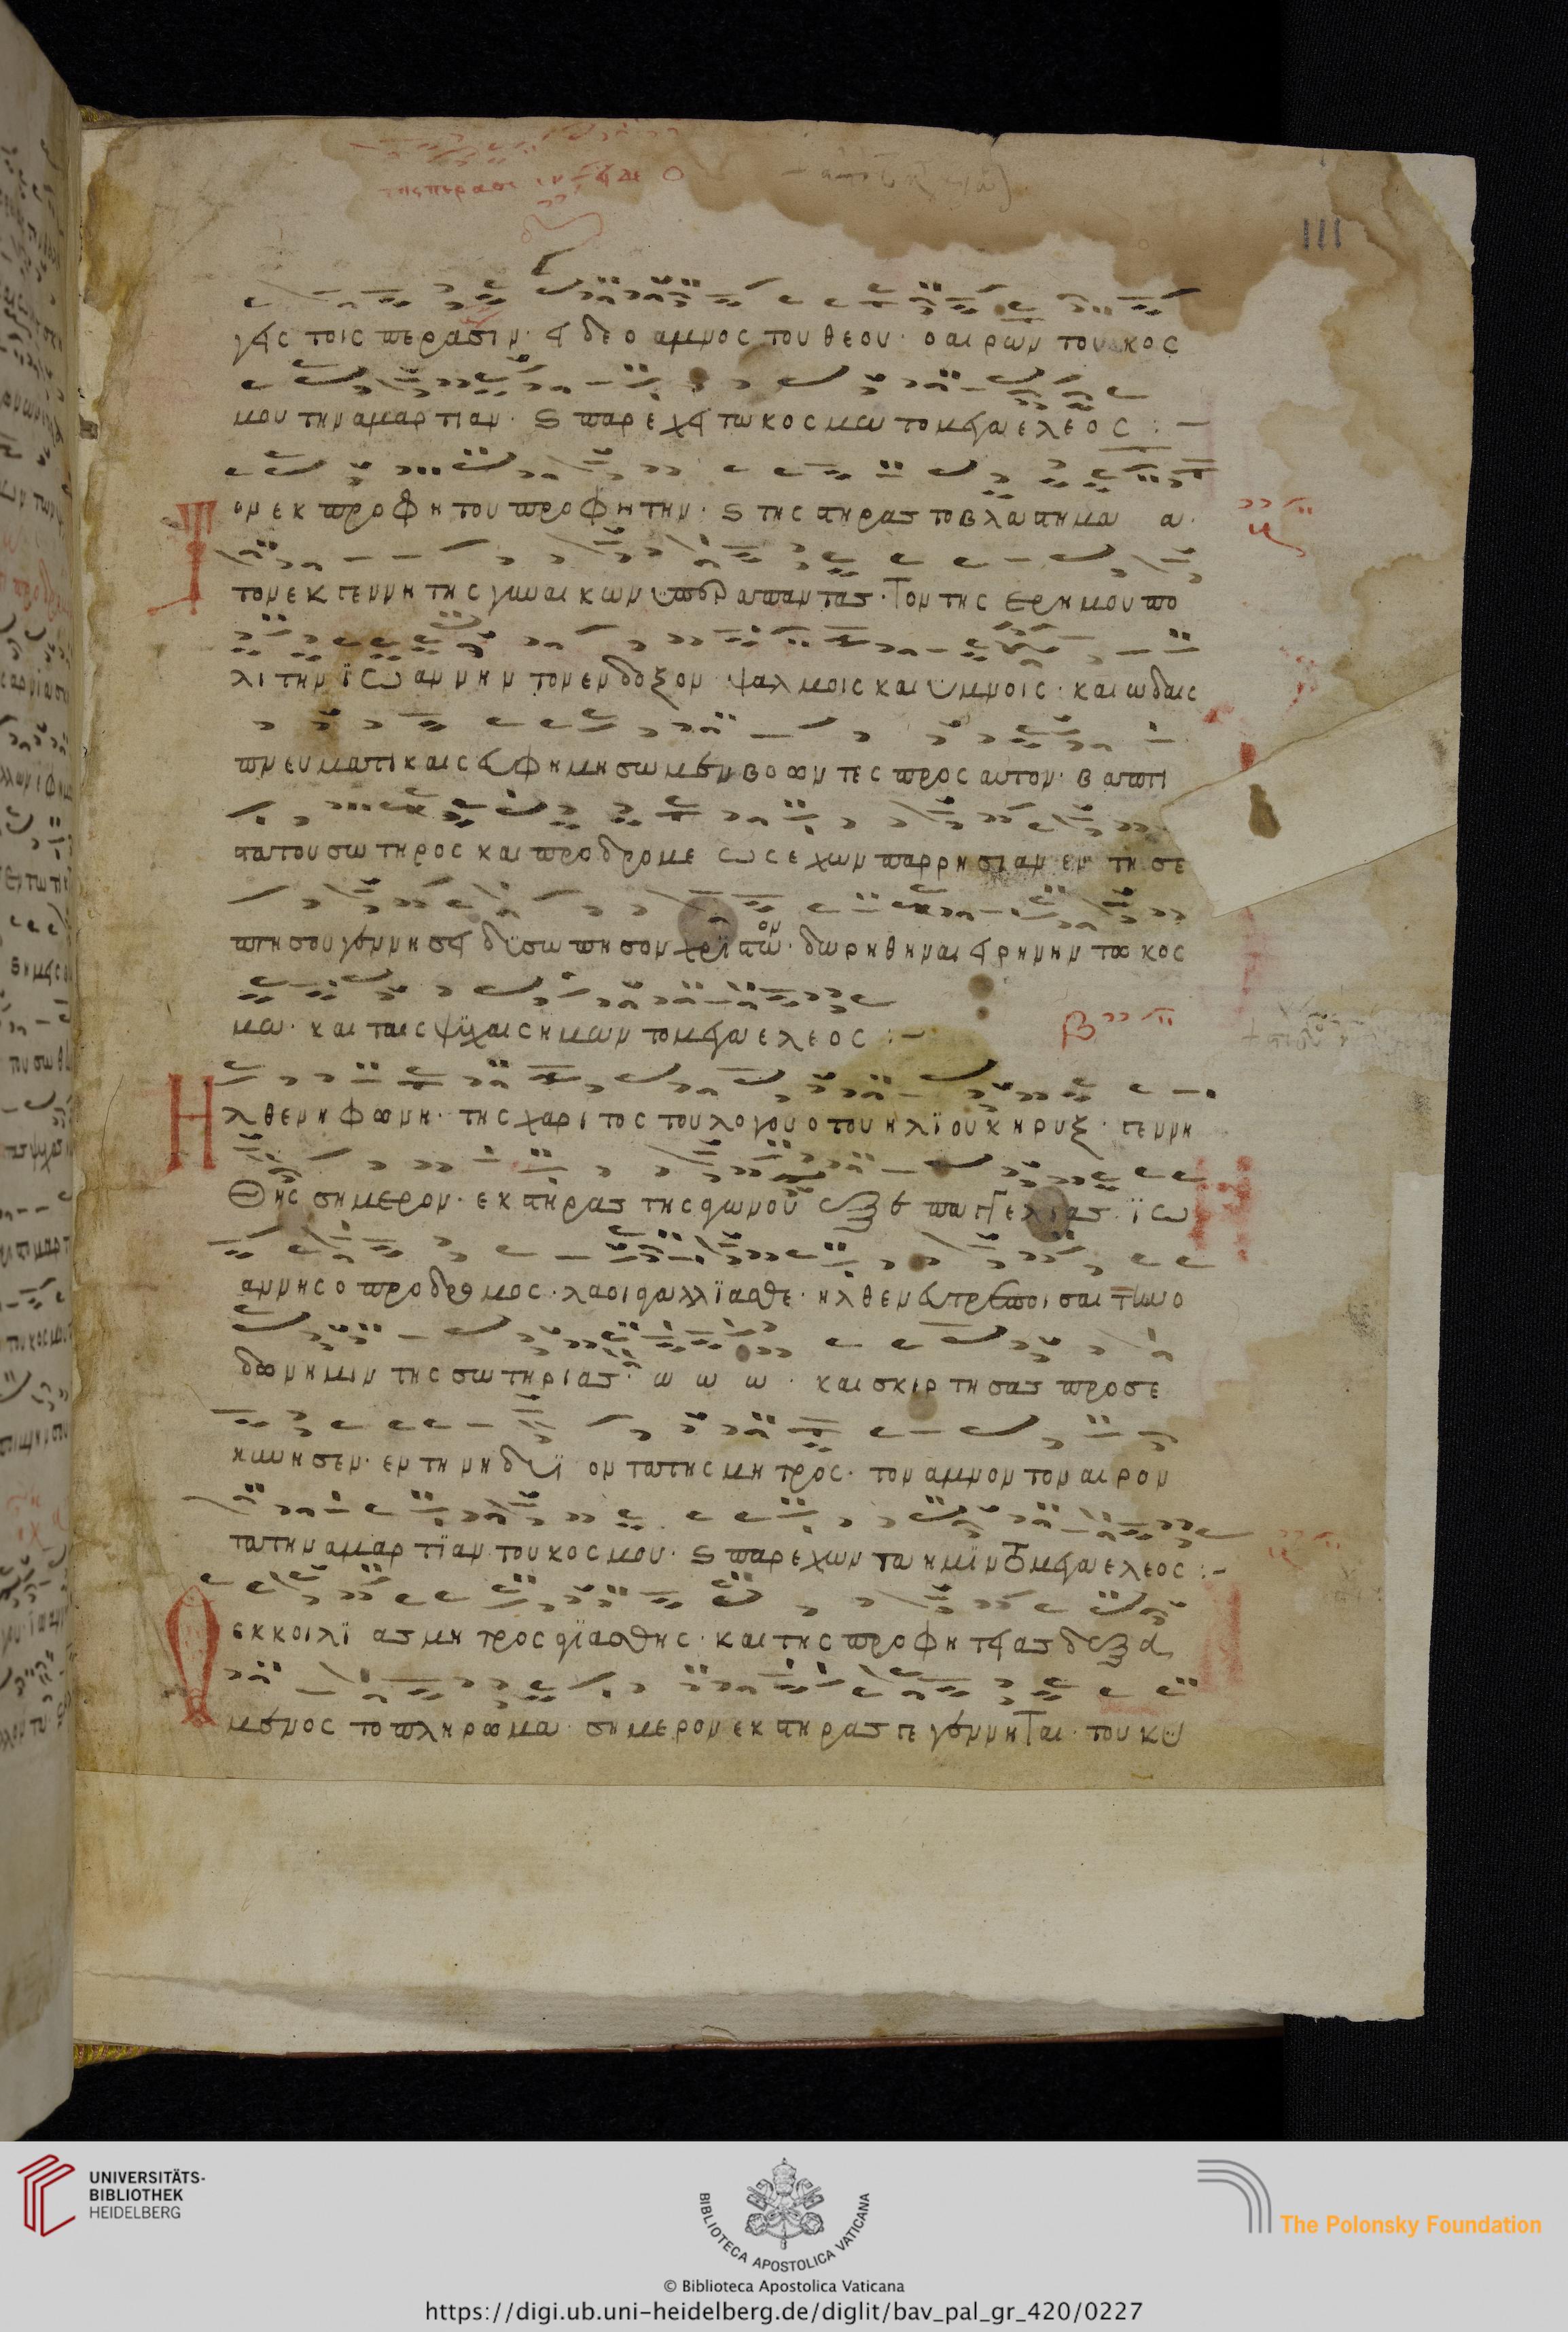 111
γεις τοις περασιν · ειδε ο αμνος του θεου · ο αιρων του κοσ
μου την αμαρτιαν · ϛ παρεχει τω κοσμω το μεγα ελεος :-
Τ ον εκ προφητου προφητην · ϛ της στηρας το βλαστημα α ·
τον εκ γεννητης γυναικων υπερ απαντας · τον της ερημου πο
λιτην ϊωαννην τον ενδοξον ψαλμοις και υμνοις · και ωδαις
πνευματικαις ευφημησωμεν βοωντες προς αυτον · βαπτι
στα του σωτηρος και προδρομε ως εχων παρρησιαν εν τη σε
πτη σου γεννησει δϊσωπησον χριϊστον · δωρηθηναι ειρηνην τω κοσ
μω · και ταις ψϋχαις ημων το μεγα ελεος :-
Η λθεν η φωνη · της χαριτος του λογου ο του ηλϊου κηρυξ · γεννη
θης σημερον · εκ στηρας της αγωνου εξ επαγγελιας · ϊω
αννης ο προδρομος · λαοι αγαλλϊασθε · ηλθεν ευτρεποισαι την ο
δων ημιν της σωτηριας · ω ω ω · και σκιρτησας προσε
κυνησεν · εν τη νηδυϊ οντα της μητρος · τον αμνον τον αιρον
τα την αμαρτϊαν του κοσμου · ϛ παρεχωντα ημϊν το μεγα ελεος :-
Ο εκ κοιλϊας μητρος αγϊασθης · και της προφητειας δεξα
μενος το πληρωμα · σημερον εκ στηρας γεγεννηται · του κυ
UNIVERSITÄTS-
BIBLIOTHEK
HEIDELBERG
BIBLIOTECA APOSTOLICA VATICANA
The Polonsky Foundation
© Biblioteca Apostolica Vaticana
https://digi.ub.uni-heidelberg.de/diglit/bav_pal_gr_420/0227